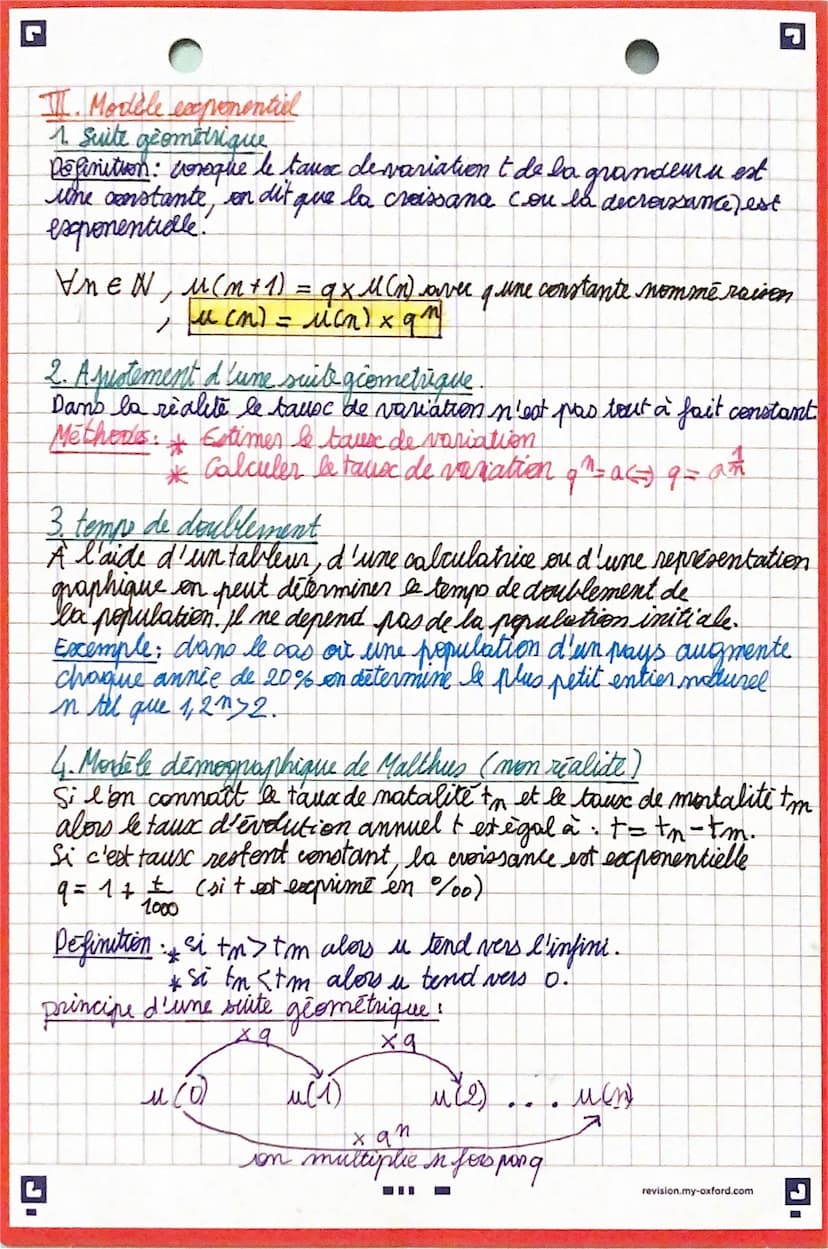 II. Modèle exponentiel
1. Suite géométrique
Définition : Lorsque le taux de variation t de la grandeur u est
une constante, on dit que la croissance (ou la decroissance) est
exponentielle.
∀n ∈ N, u(n+1) = q x u(n) avec q une constante nommé raison
, u(n) = u(n) x q^n
2. Ajustement d'une suite géometrique.
Dans la réalité le taux de variation n'est pas tout à fait constant.
Méthodes : * Estimer le taux de variation
* Calculer le taux de variation q^n = a ⇔ q = a^(1/n)
3. temps de doublement
À l'aide d'un tableur, d'une calculatrice ou d'une représentation
graphique on peut déterminer le temps de doublement de
la population. Il ne depend pas de la population initiale.
Exemple : dans le cas où une population d'un pays augmente
chaque année de 20% on détermine le plus petit entier naturel
n tel que 1,2^n > 2.
4. Modèle démographique de Malthus (non réalité)
Si l'on connaît le taux de natalité tn et le taux de mortalité tm
alors le taux d'évolution annuel t est égal à : t = tn - tm.
Si c'est taux restent constant, la croissance est exponentielle
q = 1 + t/1000 (si t est exprimé en ‰)
Définition : * si tn > tm alors u tend vers l'infini.
* Si tn < tm alors u tend vers 0.
principe d'une suite géométrique :
x q x q
u(0) u(1) u(2) ... u(n)
x q^n
on multiplie n fois par q
revision.my-oxford.com